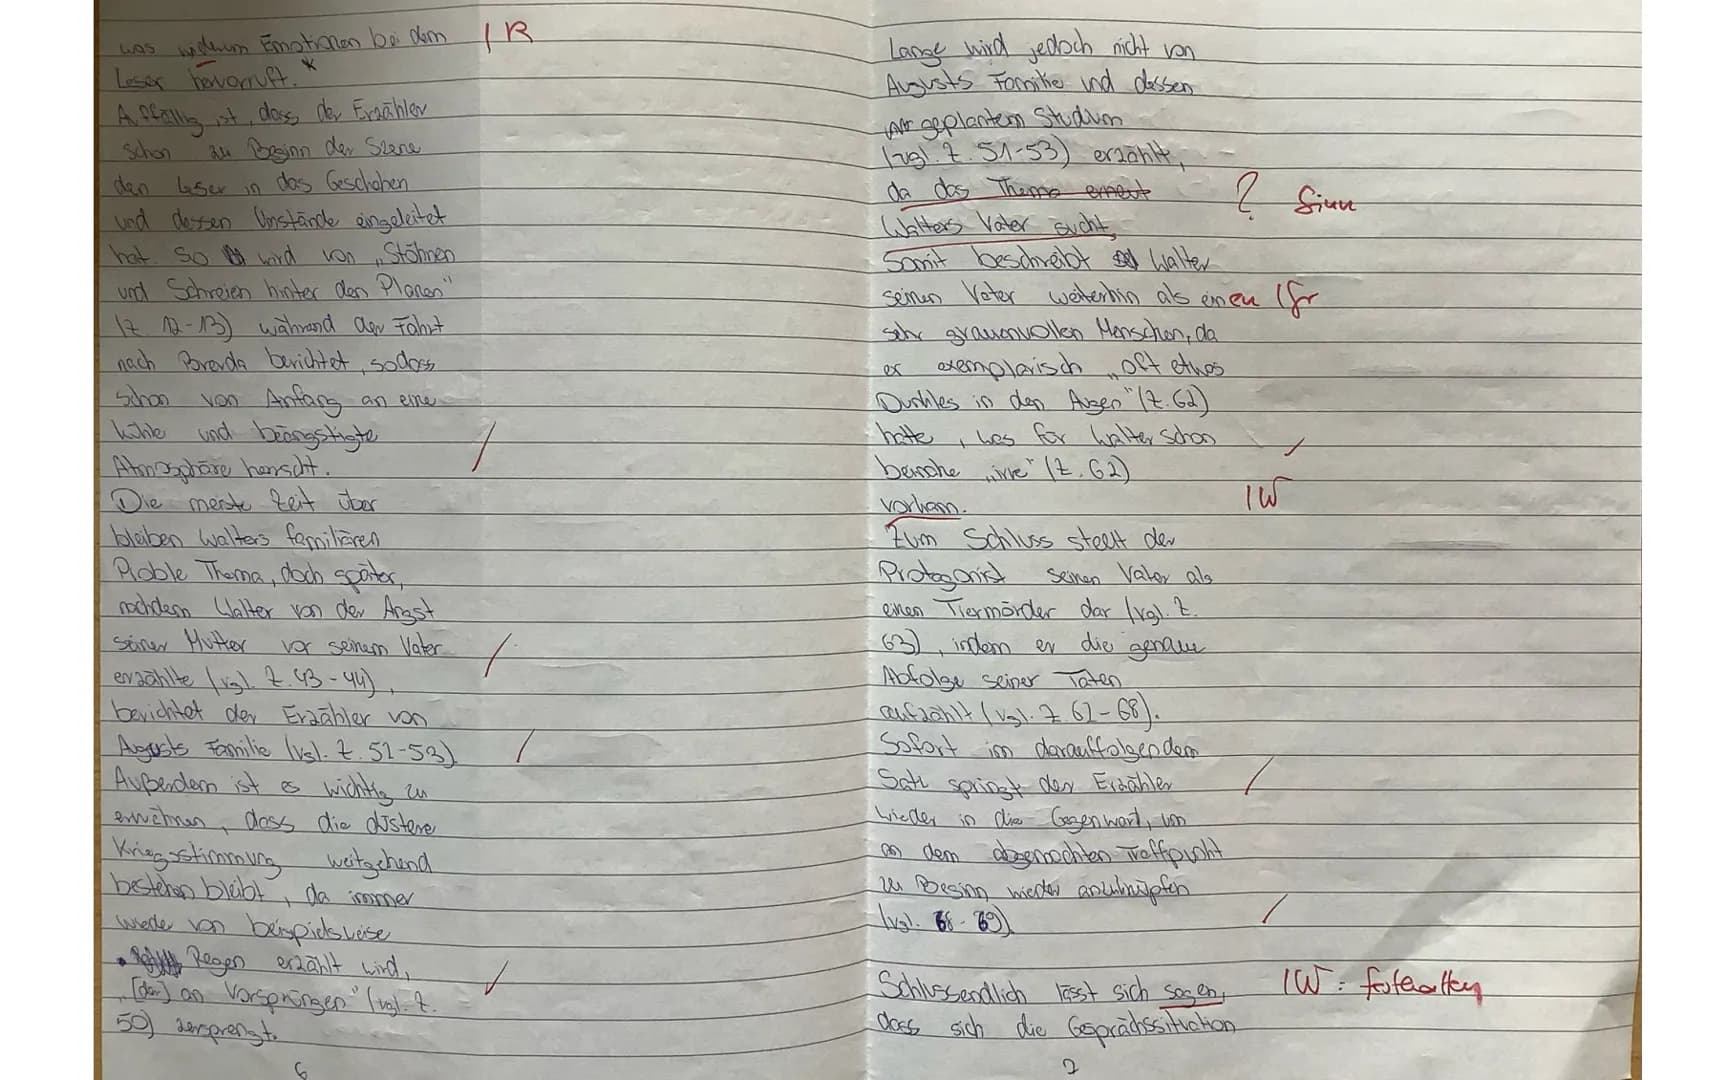 was widerum Emotionen bei dem | R
Leser hervorruft. *
Auffällig ist, dass der Erzähler
schon zu Beginn der Szene
den Leser in das Geschehen
und dessen Umstände eingeleitet
hat. So wird von „Stöhnen
und Schreien hinter den Planen"
(Z. 12-13) während der Fahrt
nach Breda berichtet, sodass
schon von Anfang an eine
kühle und beängstigte
Atmosphäre herrscht.
Die meiste Zeit über
bleiben Walters familiären
Proble Thema, doch später,
nachdem Walter von der Angst
seiner Mutter vor seinem Vater
erzählte (vgl. Z. 43-44),
berichtet der Erzähler von
Augusts Familie (vgl. Z. 51-53)
Außerdem ist es wichtig zu
erwähnen, dass die düstere
Kriegsstimmung weitgehend
bestehen bleibt, da immer
wieder von beispielsweise
Regen erzählt wird,
„[der] an Vorsprüngen" (vgl. Z.
50) zersprengt.
6
Lange wird jedoch nicht von
Augusts Familie und dessen
geplantem Studium
(vgl. Z. 51-53) erzählt,
da das Thema erneut ? Sinn
Walters Vater sucht,
Somit beschreibt Walter
seinen Vater weiterhin als einen | Gr
sehr grauenvollen Menschen, da
er exemplarisch „oft etwas
Dunkles in den Augen" (Z. 62)
hatte, was für Walter schon
beinahe „irre" (Z. 62)
vorkam. | W
Zum Schluss stellt der
Protagonist seinen Vater als
einen Tiermörder dar (vgl. Z.
63), indem er die genaue
Abfolge seiner Taten
aufzählt (vgl. Z. 62-68).
Sofort im darauffolgendem
Satz springt der Erzähler
wieder in die Gegenwart, um
an dem abgemachten Treffpunkt
zu Beginn wieder anzuknüpfen
(vgl. 68-69)
Schlussendlich lässt sich sagen, | W: festhalten
dass sich die Gesprächssituation
7